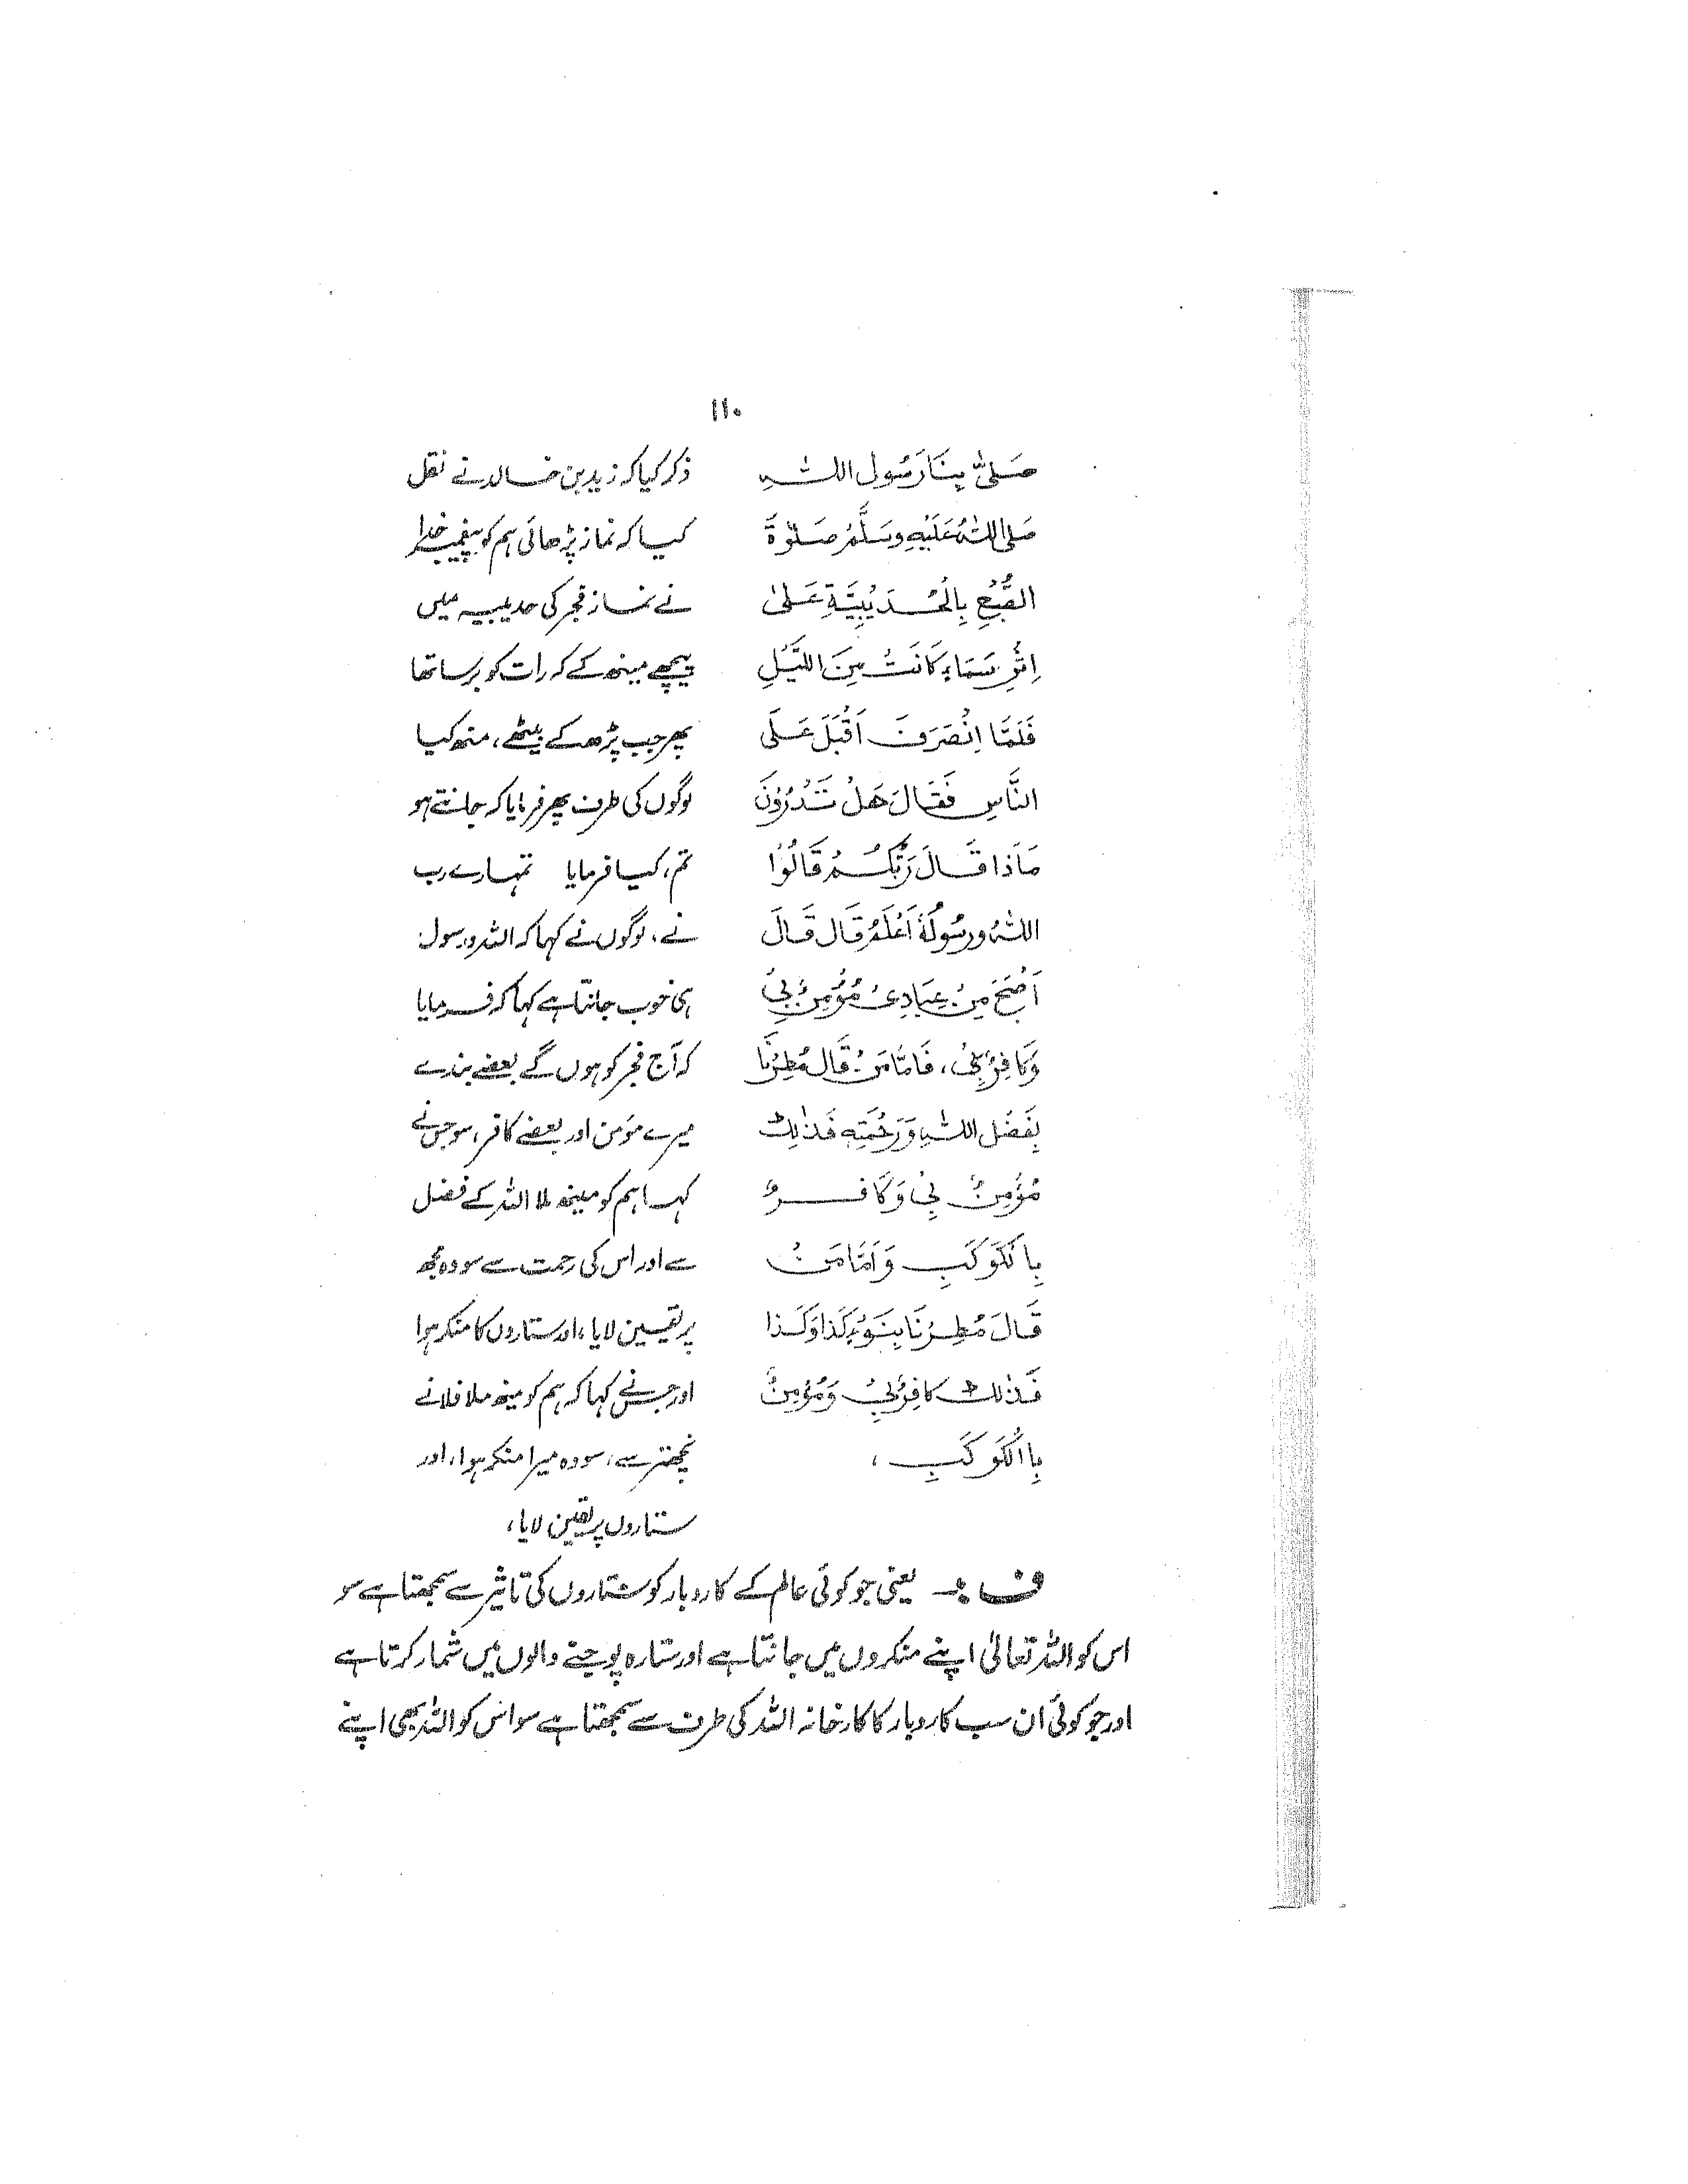 ۱۱۰
صَلّٰى بِنَا رَسُول اللہِ
صلی اللہُ عَلَيْهِ وسَلَّمُ صَلوٰةَ
الصُّبْحِ بِالْحُدَيْبِيَّةِ عَلٰى
اِثْرِ سَمَاءٍ كَانَتْ مِنَ اللَّيْلِ
فَلَمَّا اِنْصَرَفَ اَقْبَلَ عَلَى
النَّاسِ فَقَالَ هَلْ تَدْرُوْنَ
مَاَذا قَالَ رَبُّكُمْ قَالُوْا
اللہُ ورسُولُهٗ اَعْلَمُ قَال قَالَ
اَصْبَحَ مِنْ عِبَادِىْ مُؤْمِنٌ بِىْ
وَكَافِرٌ بِىْ، فَامَّا مَنْ قَال مُطِرْنَا
بِفَضْل اللہِ وَرَحْمَتِهٖ فَذٰلِكَ
مُؤْمِنٌ بِىْ وَكَافِرٌ
بِالْكَوَكَبِ وَاَمَّا مَنْ
قَالَ مُطِرْنَا بِنَوْءِ كَذَا وَكَذا
فَذٰلك كافِرٌ بِىْ وَمُؤمِنٌ
بِاالْكَوَكَبِ،
ذکر کیا کہ زید بن خالد نے نقل
کیا کہ نماز پڑھائی ہم کو پیغمبر خدا
نے نماز فجر کی حدیبیہ میں
پیچھے مینھ کے کہ رات کو برسا تھا
پھر جب پڑھ کے بیٹھے، منھ کیا
لوگوں کی طرف پھر فرمایا کہ جانتے ہو
تم، کیا فرمایا تمہارے رب
نے، لوگوں نے کہا کہ اللہ و رسول
ہی خوب جانتا ہے کہا کہ فرمایا
کہ آج فجر کو ہوں گے بعضے بندے
میرے مؤمن اور بعضے کافر، سو جس نے
کہا ہم کو مینھ ملا اللہ کے فضل
سے اور اس کی رحمت سے سو وہ مجھ
پر یقین لایا، اور ستاروں کا منکر ہوا
اور جس نے کہا کہ ہم کو مینھ ملا فلانے
نچھتر سے، سو وہ میرا منکر ہوا، اور
ستاروں پر یقین لایا،
ف :۔ یعنی جو کوئی عالم کے کاروبار کو ستاروں کی تاثیر سے سمجھتا ہے سو
اس کو اللہ تعالیٰ اپنے منکروں میں جانتا ہے اور ستارہ پوجنے والوں میں شمار کرتا ہے
اور جو کوئی ان سب کاروبار کا کارخانہ اللہ کی طرف سے سمجھتا ہے سو اس کو اللہ بھی اپنے